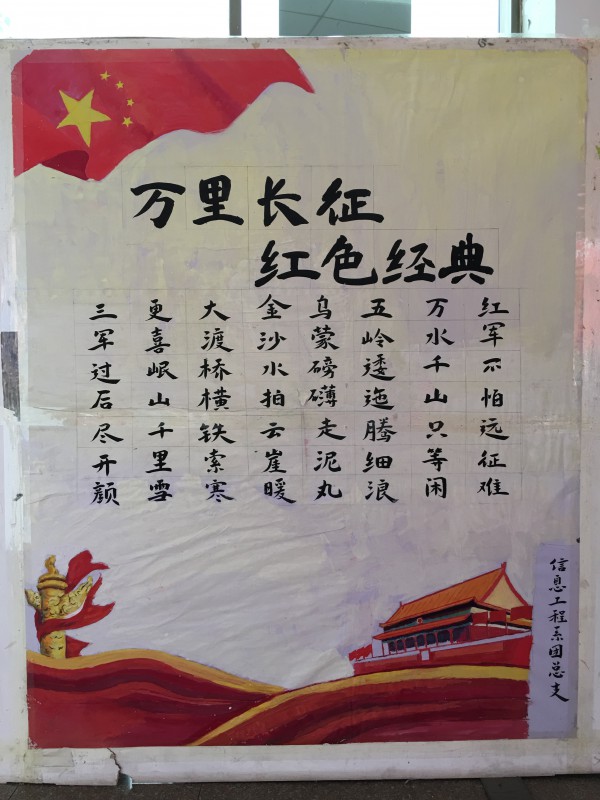 万里长征
红色经典
红军不怕远征难
万水千山只等闲
五岭逶迤腾细浪
乌蒙磅礴走泥丸
金沙水拍云崖暖
大渡桥横铁索寒
更喜岷山千里雪
三军过后尽开颜
信息工程系团总支